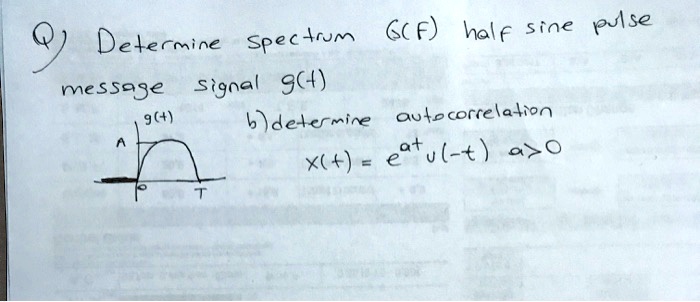 Q) Determine spectrum G(F) half sine pulse
message signal g(t)
g(t)
b) determine autocorrelation
A
x(t) = e^at u(-t) a>0
0
T